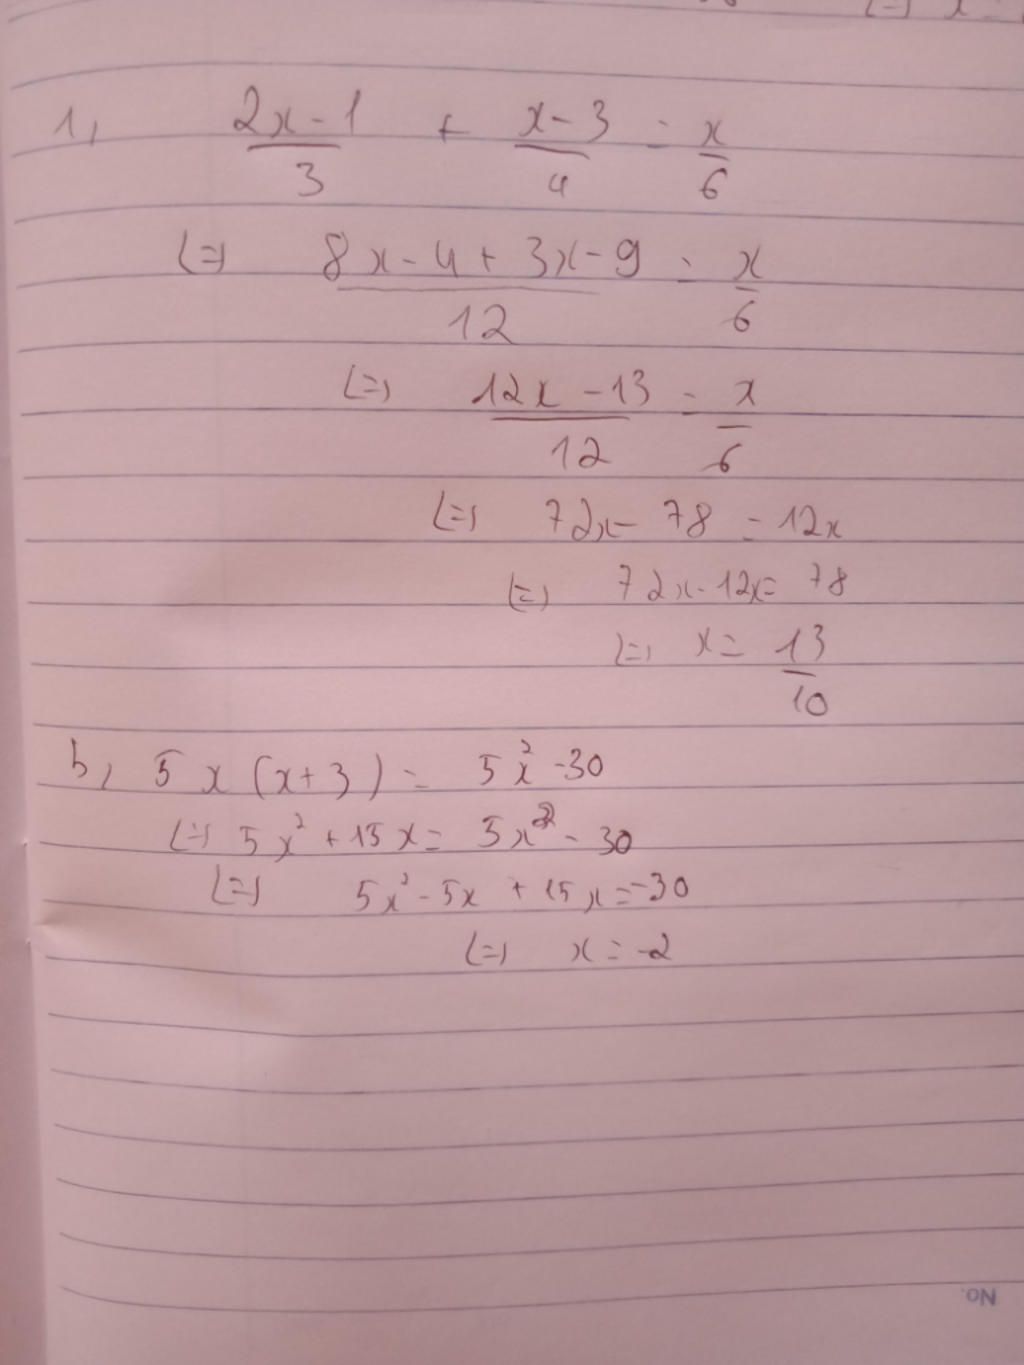 1, (2x - 1)/3 + (x - 3)/4 = x/6
(=) (8x - 4 + 3x - 9)/12 = x/6
(=) (12x - 13)/12 = x/6
(=) 72x - 78 = 12x
(=) 72x - 12x = 78
(=) x = 13/10
b, 5x (x + 3) = 5x² - 30
(=) 5x² + 15x = 5x² - 30
(=) 5x² - 5x + 15x = -30
(=) x = -2
No.